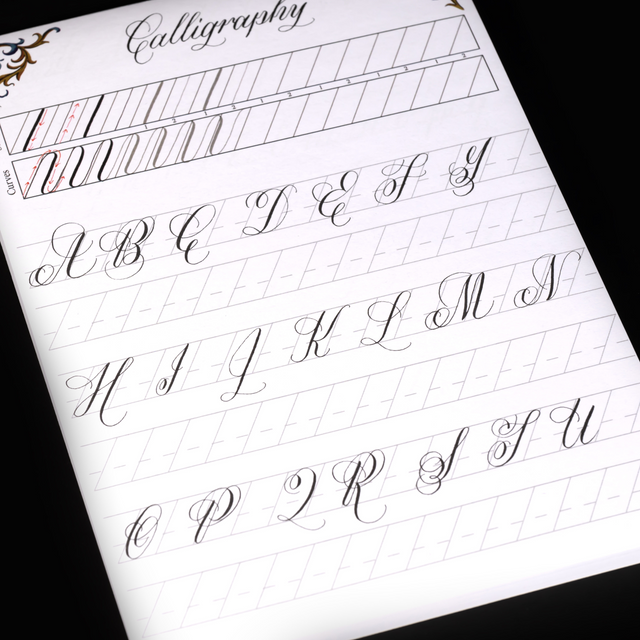 Calligraphy
Curves
A B C D E F G
H I J K L M N
O P Q R S T U